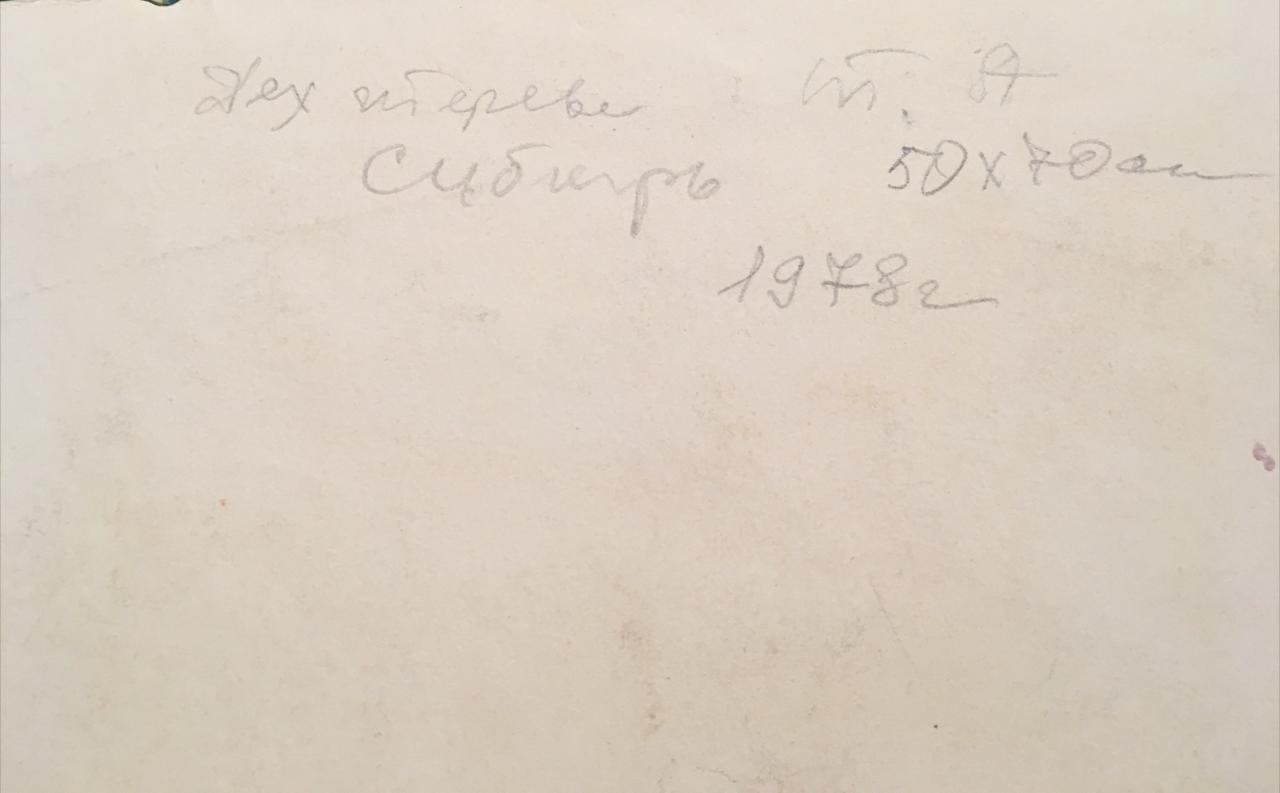 Дехтерева Т. Я
Сибирь 50х70см
1978г